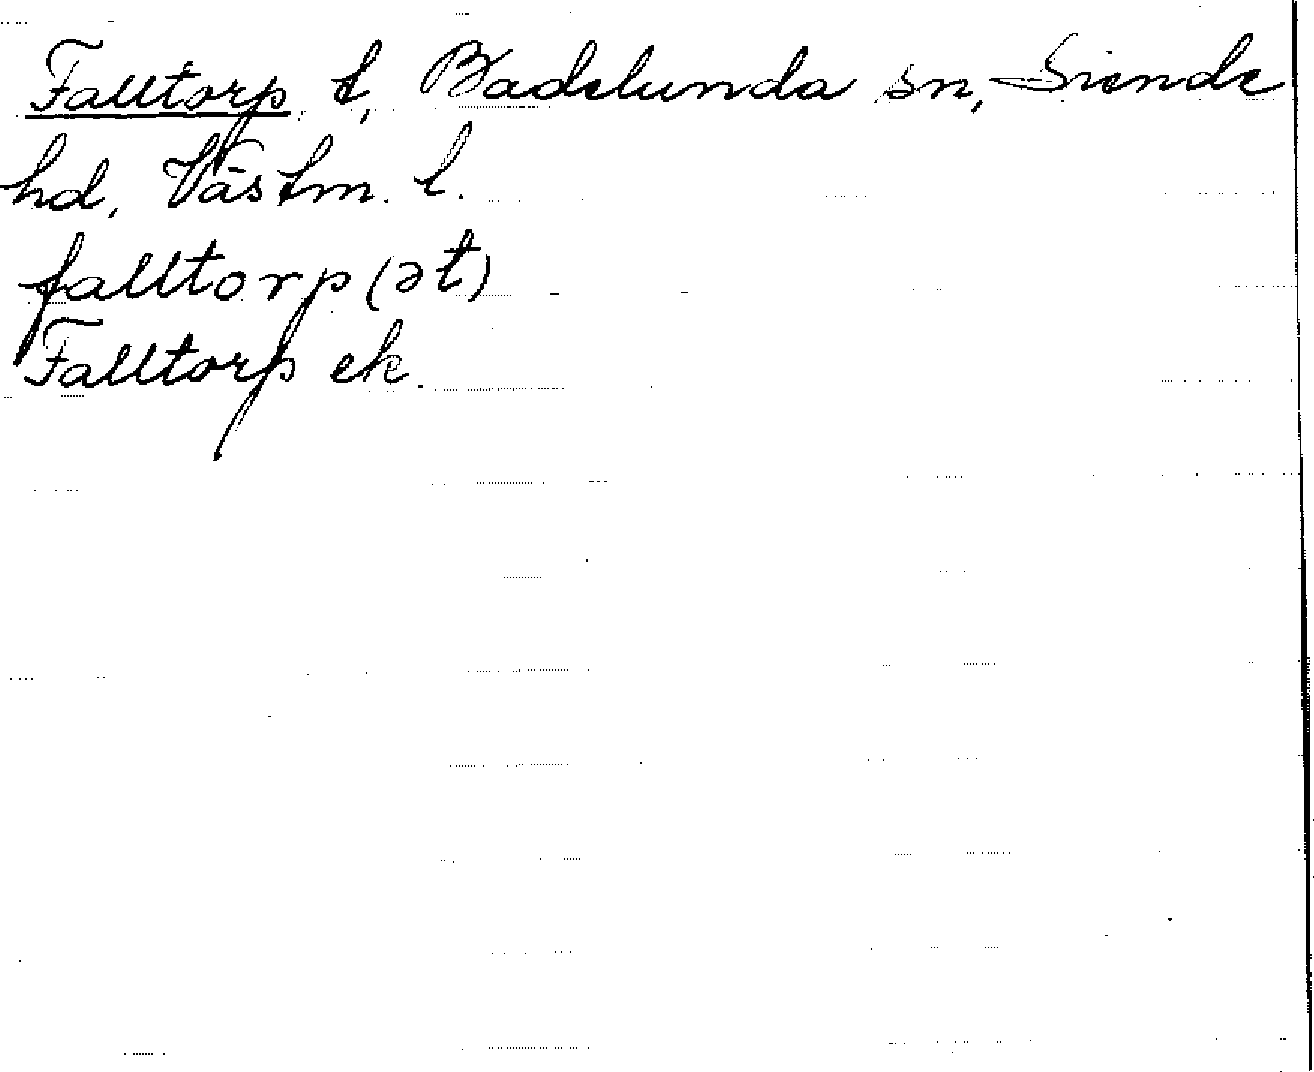 Falltorp t, Badelunda sn, Siende
hd, Västm. l.
falltorp (ət)
Falltorp ek.